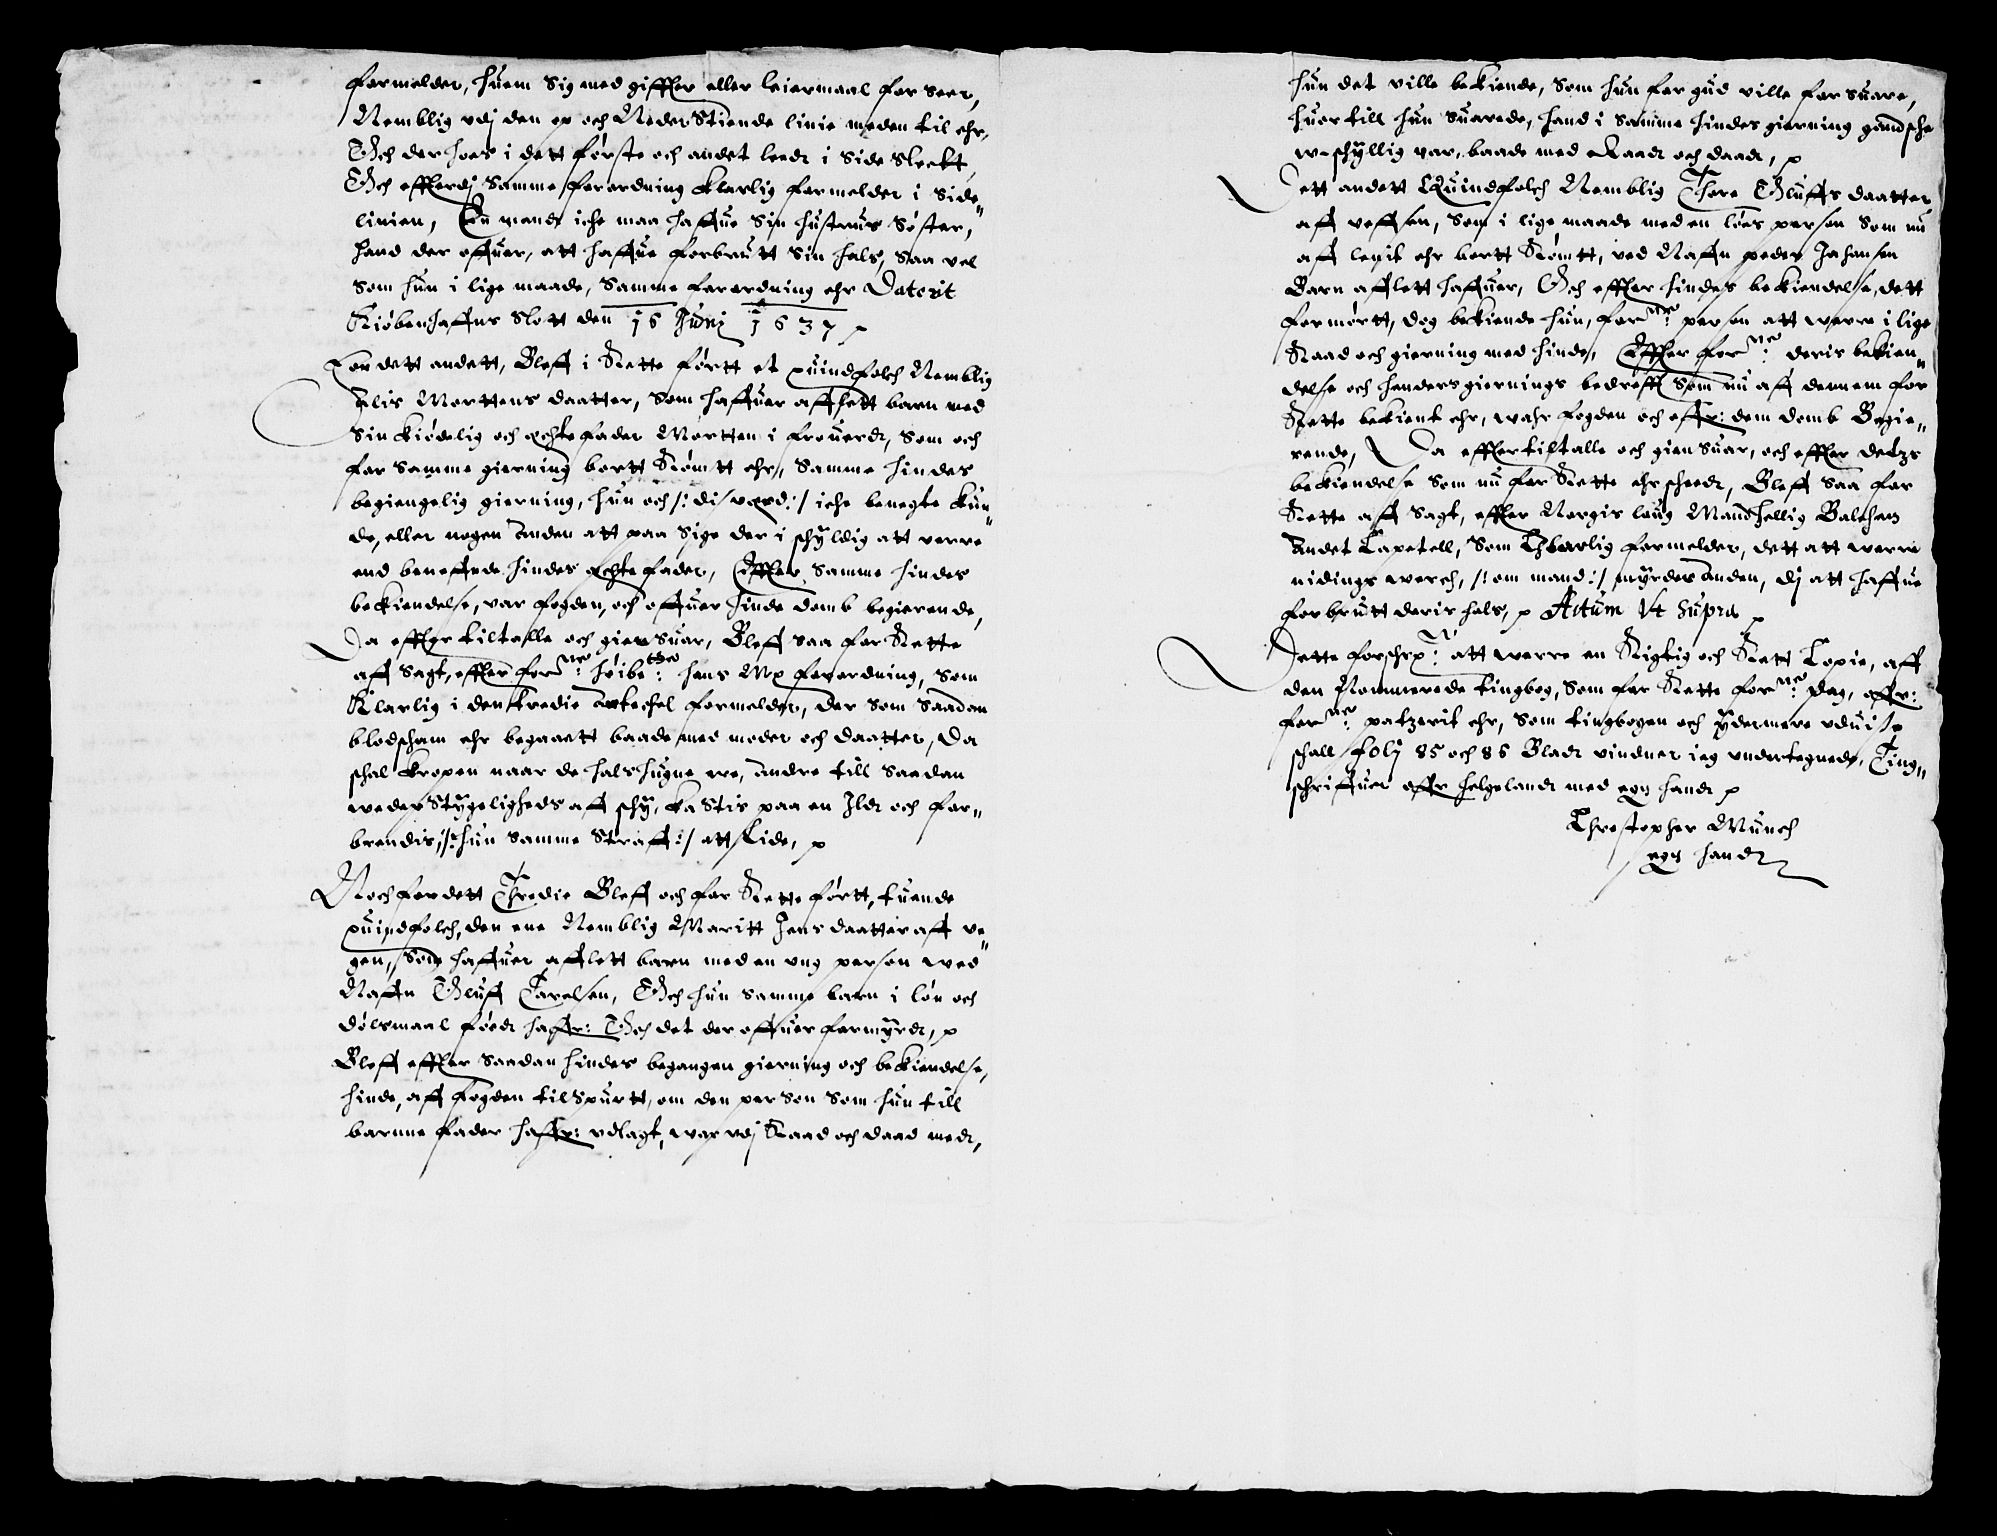 formelder, huem sig med gifften eller leiermaal for seer,
Nemblig vdj den op och Neder Stiende linie meden til ehr,
Och der hoes i dett første och andet leedt i side Sleckt,
Och effterdj Samme forordning klarlig formelder i Side„
linien, En mands iche maa haffue Sin hustrues Søster,
hand der offuer, att haffue forbrutt Sin hals, Saa vel
Som hun i lige maade, Samme forordning ehr Daterit
Kiøbenhaffns Slott den 16 Junj 1637
For dett andett, Bleff i Retteførtt et quindfolch Nemblig
Alis Mortens daatter, Som haffuer afflett barn med
Sin kiødelig och echte fader Morten i frouerdt, Som och
for Samme gierning bortt Rømtt ehr, Samme hindes
begiengelig gierning, hun och /: dis verd :/ iche benegte kun„
de, eller nogen Anden att paa Sige der i schyldig att verre
end beneffnde hindes echte fader, Effter Samme hindes
bekiendelse, var fogden, och offuer hinde domb begierende,
Da effter tiltalle och giensuar, Bleff saa for Rette
aff Sagt, effter forne: høibete: hans Mtz forordning, Som
Klarlig i den tredie Artechel formelder, der Som Saadan
blodscham ehr begaaett baade med moder och daatter, Da
schal kropen naar de halshugne ere, Andre till Saadan
wederstygeligheds aff schy, kastis paa en Ildt och for„
brendis, /: hun Samme Straff :/ att Lide,
Noch for dett Tredie Bleff och for Rette førtt, tuende
quindfolch, den ene Nemblig Maritt Jens daatter aff ve„
gen, Som haffuer afflett barn med en ung person wed
Naffn Oluff Tarelsen, Och hun Samme barn i løn och
dølsmaal føedt haffr: Och det der offuer formyrdt,
Bleff effter Saadan hindes begangen gierning och bekiendelse,
hinde, aff fogden tilspurtt, om den person Som hun till
barnne fader haffr: vdlagt, war vdj Raad och daad medt,
hun det ville bekiende, Som hun for gud ville forsuare,
huor till hun Suarede, hand i Samme hindes gierning gandsche
w-schyllig var, baade med Raadt och daadt,
Ett andett Quindfolch Nemblig Thore Oluffs daatter
aff veffsen, Som i lige maade med en løes person Som nu
aff lenit ehr bortt Rømtt, ved Naffn peder Johansen
Barn afflett haffuer, Och effter hindes bekiendelse, dett
formørtt, dog bekiende hun, forne: person att were i lige
Raad och gierning med hinde, Effter forne: deris bekien„
delse och handers giernings bedreff Som nu aff dennem for
Rette bekient ehr, wahr fogden och offr: dem domb Begie„
rende, Da effter tiltalle och giensuar, och effter detzs
bekiendelse Som nu for Rette ehr scheedt, Bleff Saa for
Rette aff Sagt, effter Norgis laug Mandhellig Balchens
Andet Capetell, Som Chlarlig formelder, dett att werre
nidings werch, /: om mand :/ myrder Anden, dj att haffue
forbrutt deris hals, Actum Ut Supra
Dette forschrt: att werre en Rigtig och Rett Copie, aff
den Nommerede tingbog, Som for Rette forne: dag, offr:
forne: patzerit ehr, Som tingbogen och ydermere vduise
schall folj 85 och 86 Bladt vindner ieg undertegnede, Ting„
schriffuer offr helgelandt med egn handt
Christopher Munch
egn handt